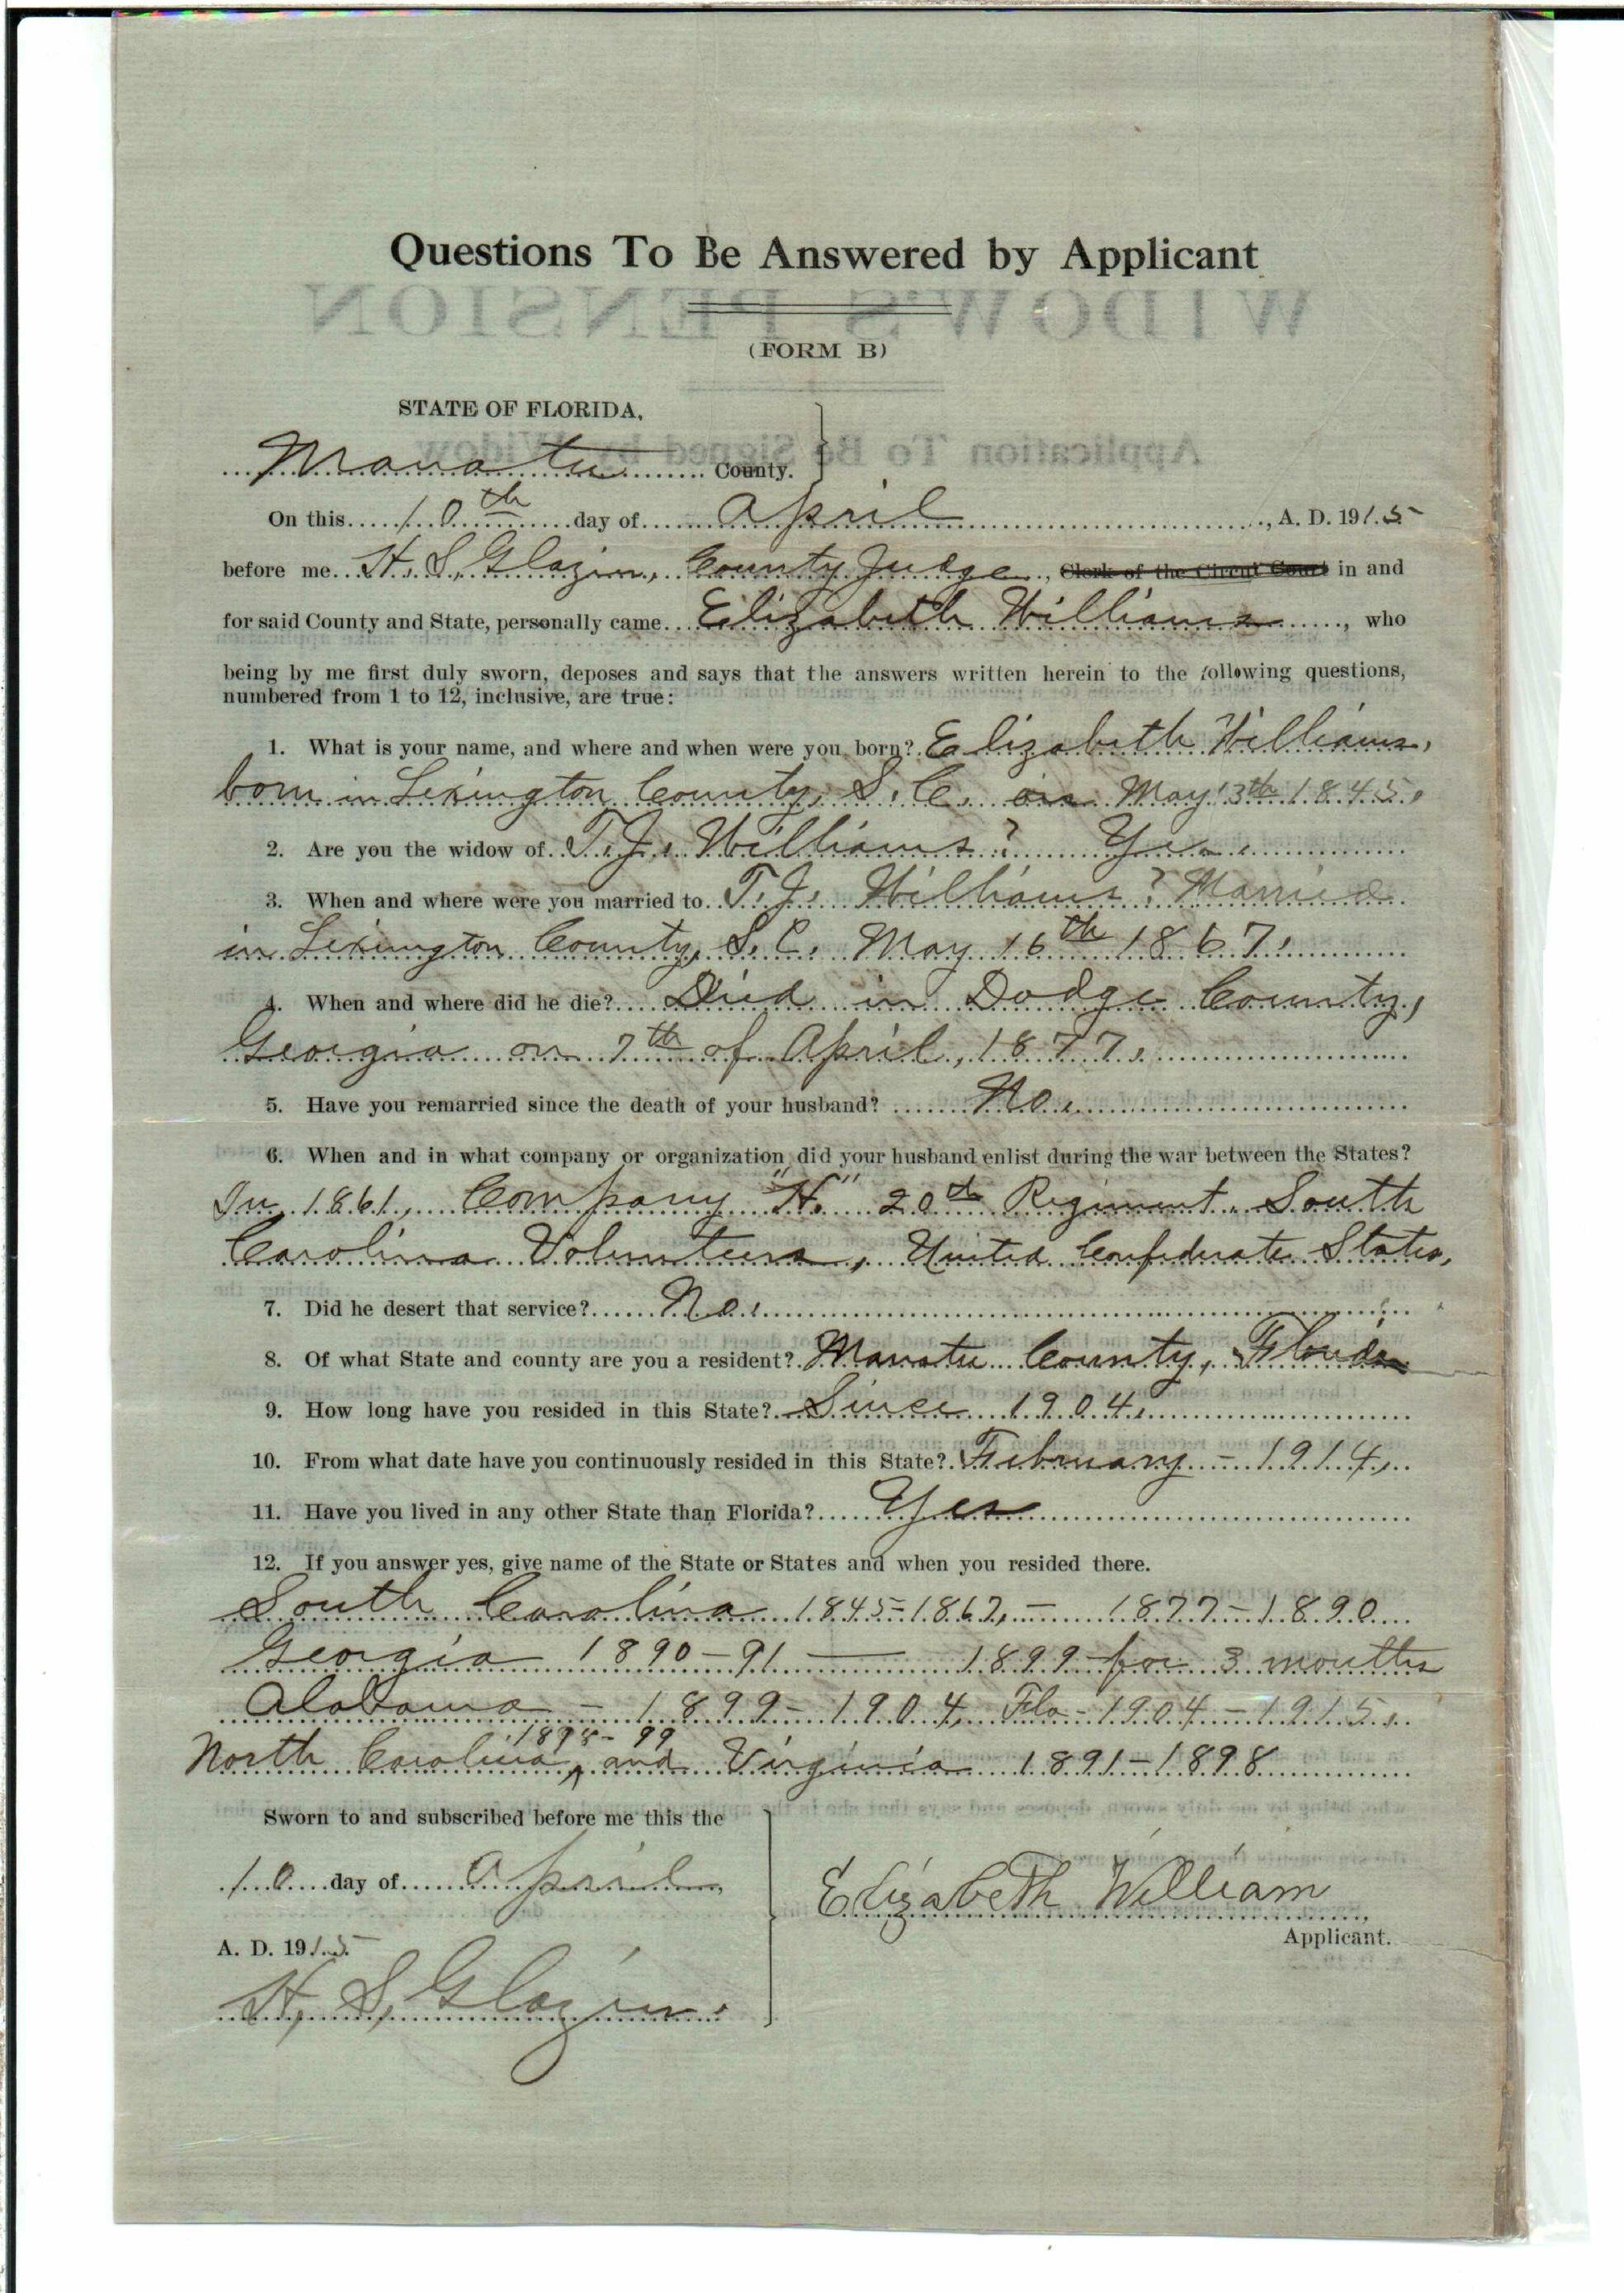 Questions To Be Answered by Applicant
WIDOW'S PENSION
(FORM B)
STATE OF FLORIDA,
Application To Be Signed by Widow
Manatee County.
On this 10th day of April, A. D. 1915
before me H. S. Glazier, County Judge, Clerk of the Circuit Court in and
for said County and State, personally came Elizabeth Williams, who
being by me first duly sworn, deposes and says that the answers written herein to the following questions,
numbered from 1 to 12, inclusive, are true:
1. What is your name, and where and when were you born? Elizabeth Williams,
born in Lexington County, S. C. on May 13th 1845.
2. Are you the widow of T. J. Williams? Yes.
3. When and where were you married to T. J. Williams? Married
in Lexington County, S. C. May 16th 1867.
4. When and where did he die? Died in Dodge County,
Georgia on 7th of April, 1877.
5. Have you remarried since the death of your husband? No.
6. When and in what company or organization did your husband enlist during the war between the States?
In 1861, Company "H." 20th Regiment South
Carolina Volunteers, United Confederate States.
7. Did he desert that service? No.
8. Of what State and county are you a resident? Manatee County, Florida
9. How long have you resided in this State? Since 1904.
10. From what date have you continuously resided in this State? February - 1914.
11. Have you lived in any other State than Florida? Yes
12. If you answer yes, give name of the State or States and when you resided there.
South Carolina 1845-1867, - 1877-1890
Georgia 1890-91 — 1899 for 3 months
Alabama - 1899-1904, Fla - 1904-1915.
1898-99
North Carolina, and Virginia 1891-1898
Sworn to and subscribed before me this the
10 day of April,
Elizabeth William
Applicant.
A. D. 1915.
H. S. Glazier.